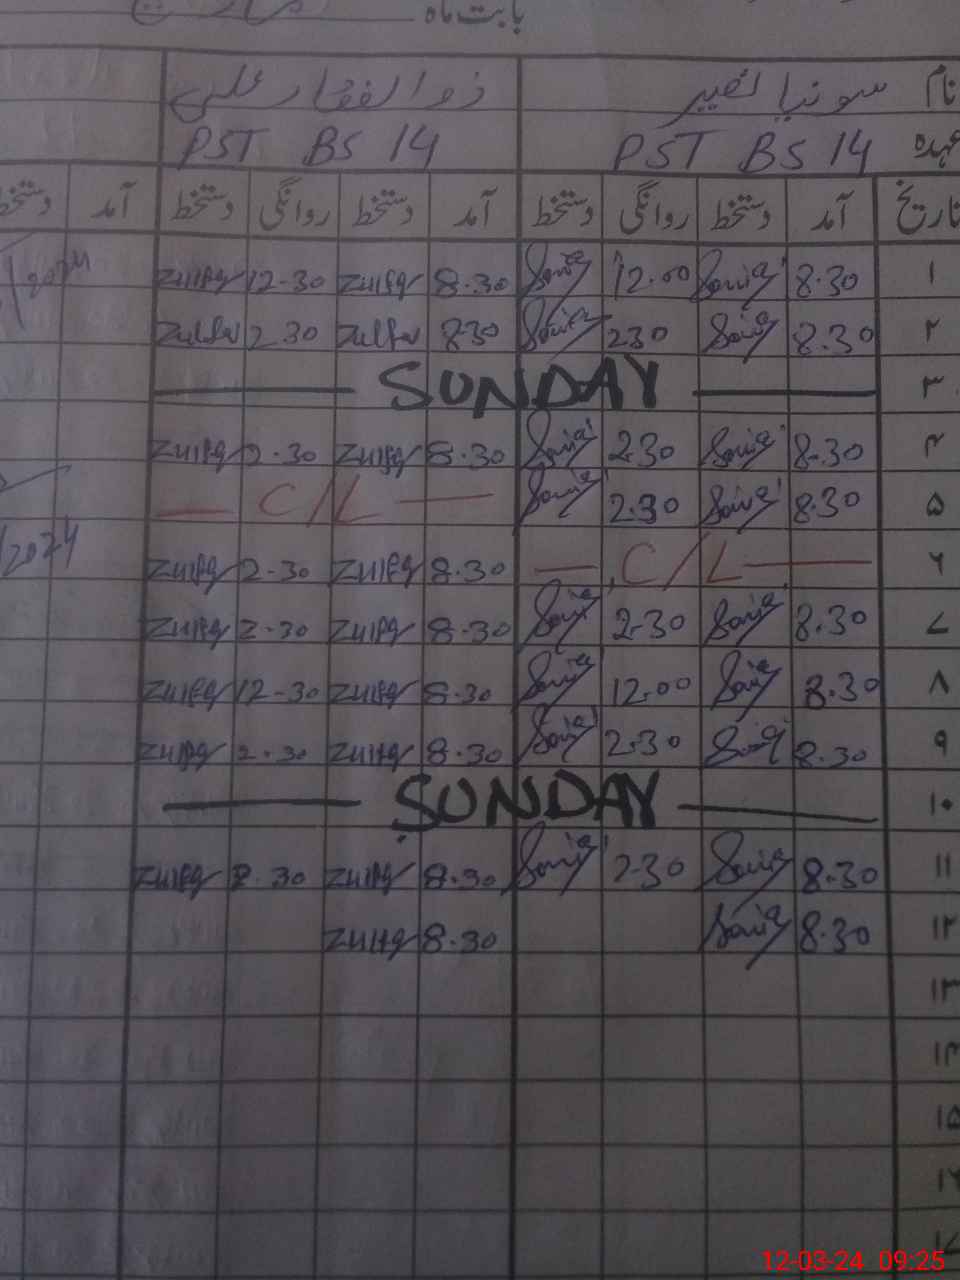 بابت ماہ مارچ
نام سونیا نصیر ذوالفقار علی
عہدہ PST BS 14 PST BS 14
تاریخ آمد دستخط روانگی دستخط آمد دستخط روانگی دستخط آمد دستخط
۱ 8.30 Sonia 12.00 Sonia 8.30 Zulfq 12-30 Zulfq
۲ 8.30 Sonia 230 Sonia 830 Zulfq 2.30 Zulfq
۳ SUNDAY
۴ 8.30 Sonia 2.30 Sonia 8.30 Zulfq 2.30 Zulfq
۵ 8.30 Sonia 2.30 Sonia — C/L —
۶ — C/L — 8.30 Zulfq 2-30 Zulfq
۷ 8.30 Sonia 2.30 Sonia 8.30 Zulfq 2-30 Zulfq
۸ 8.30 Sonia 12.00 Sonia 8.30 Zulfq 12-30 Zulfq
۹ 8.30 Sonia 2.30 Sonia 8.30 Zulfq 2.30 Zulfq
۱۰ SUNDAY
۱۱ 8.30 Sonia 2.30 Sonia 8.30 Zulfq 2.30 Zulfq
۱۲ 8.30 Sonia 8.30 Zulfq
۱۳
۱۴
۱۵
۱۶
۱۷
/2024
12-03-24 09:25